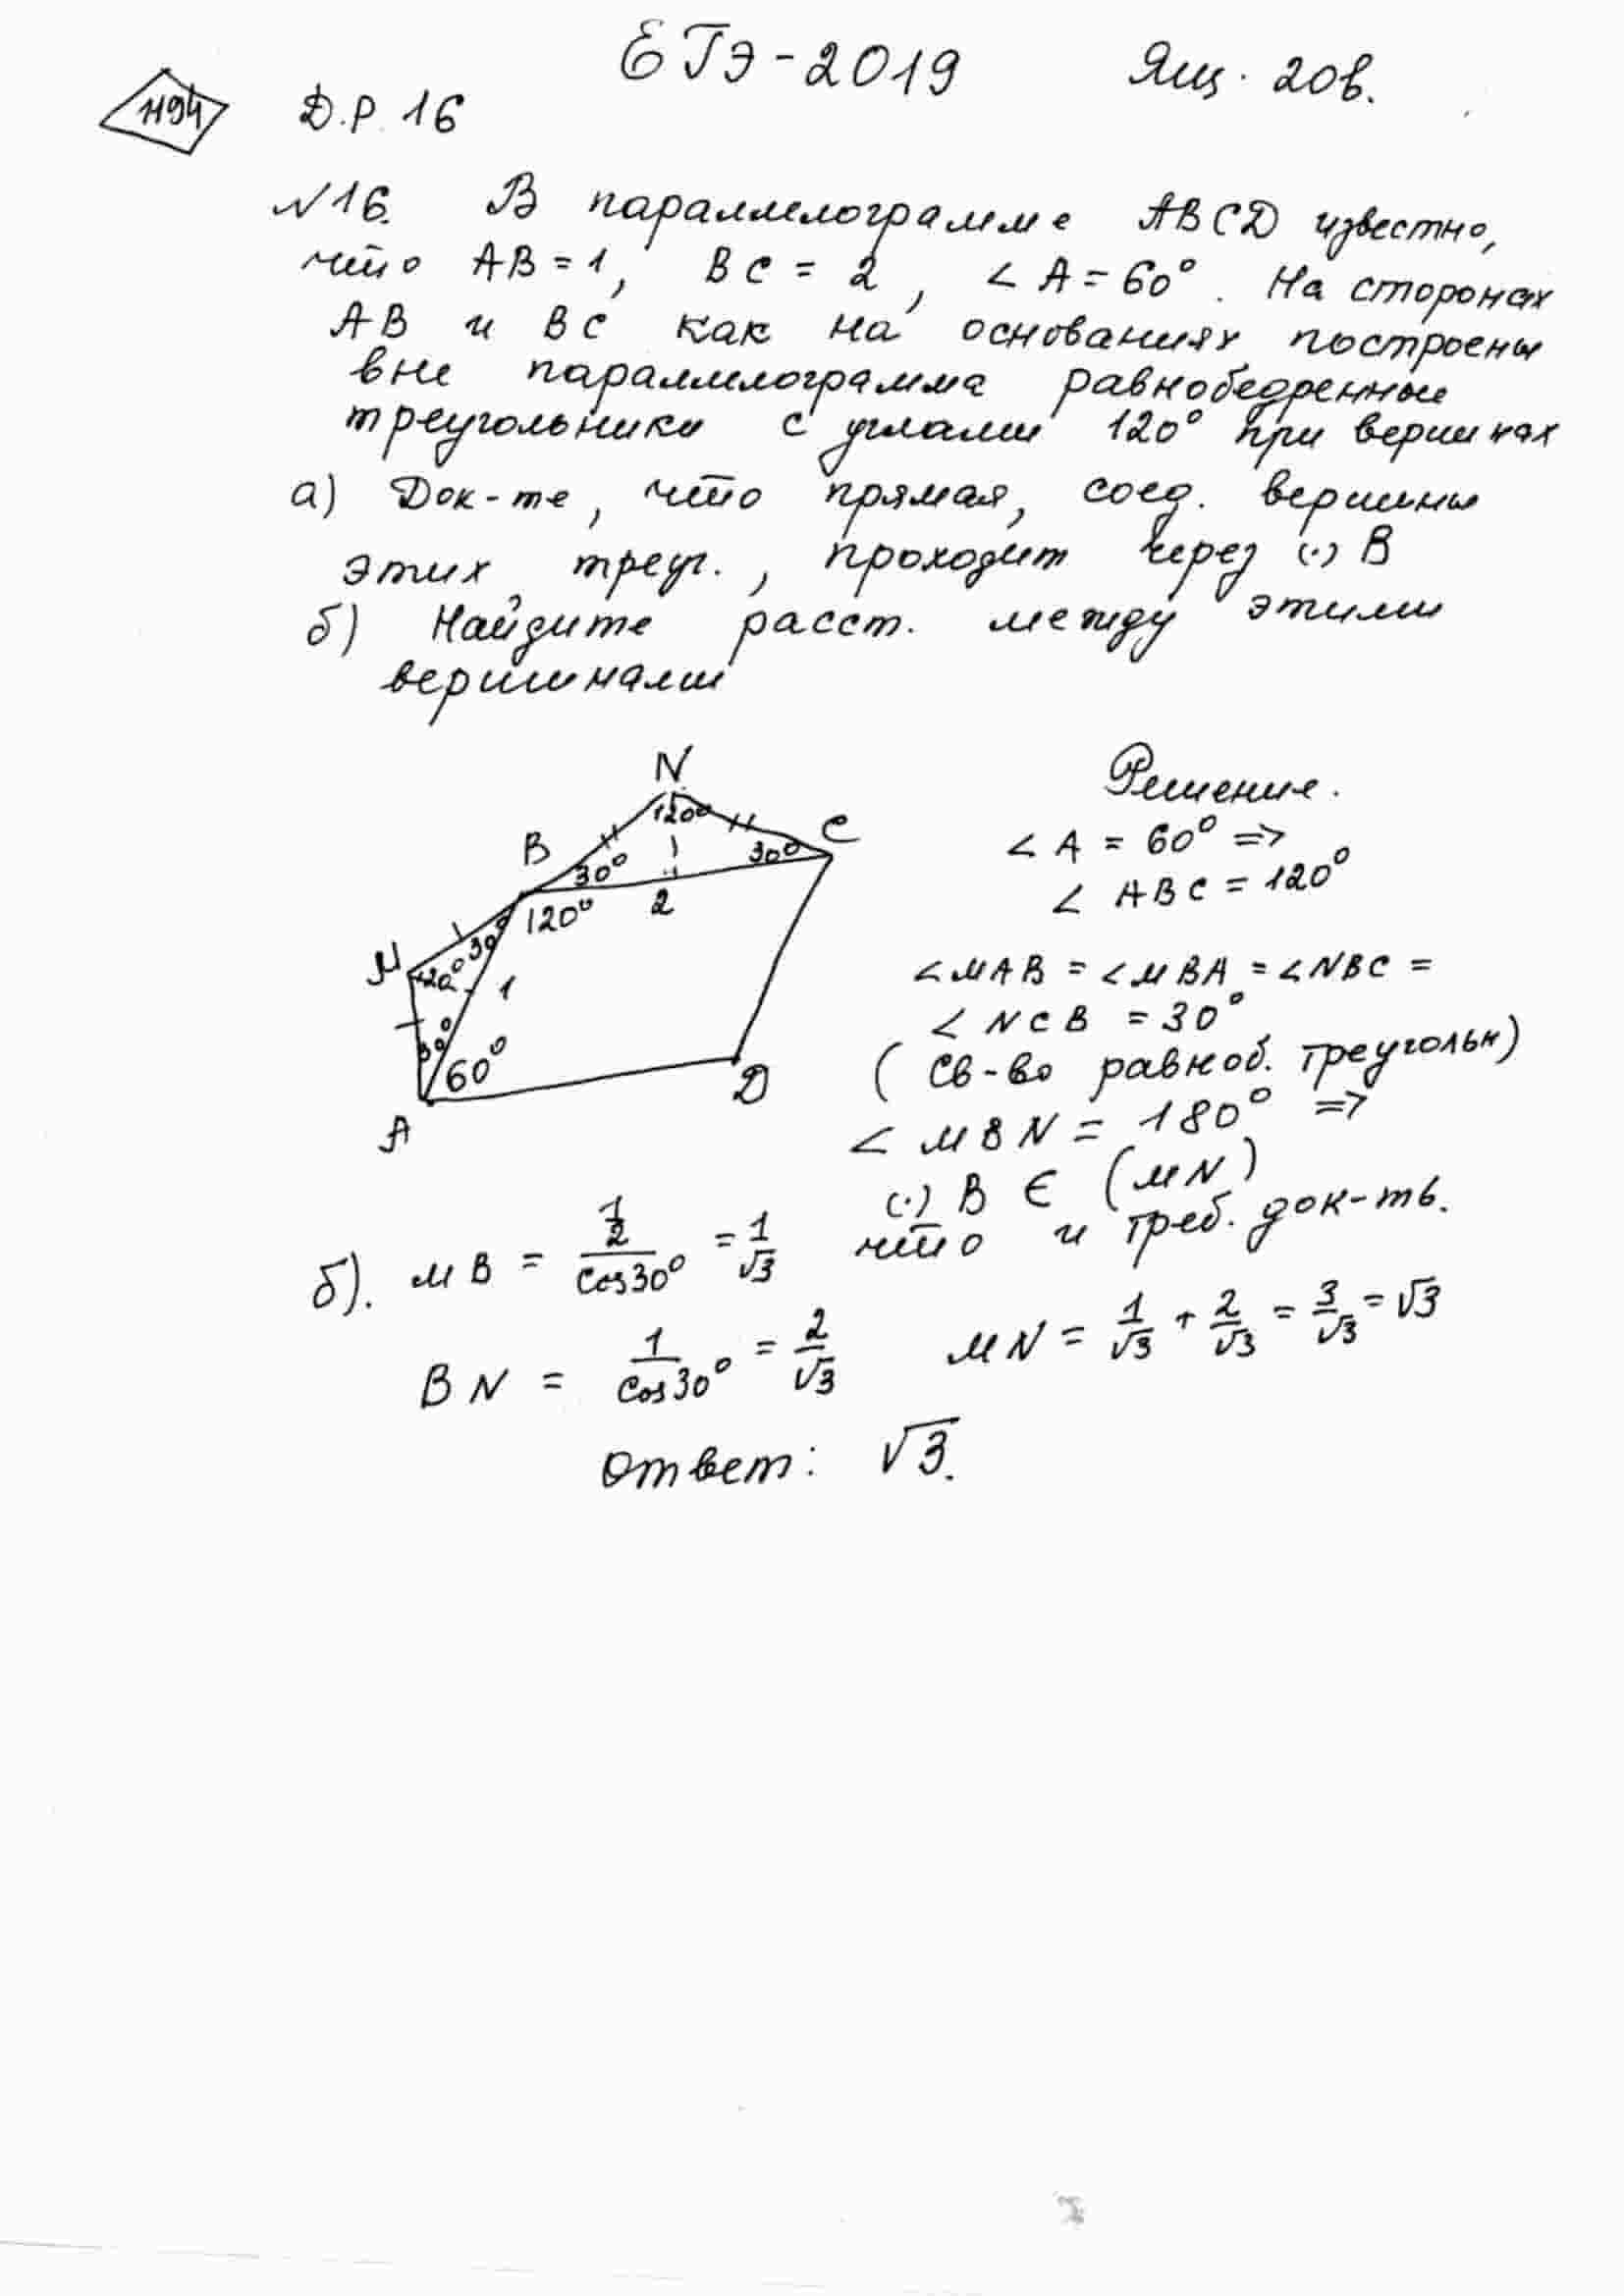 ЕГЭ-2019 Ящ. 20в.
1194 Д.Р. 16
№16. В параллелограмме ABCD известно,
что AB = 1, BC = 2, ∠A = 60°. На сторонах
AB и BC как на основаниях построены
вне параллелограмма равнобедренные
треугольники с углами 120° при вершинах
а) Док-те, что прямая, соед. вершины
этих треуг., проходит через (·) B
б) Найдите расст. между этими
вершинами
N
120°
B
C
30°
30°
120°
2
M
30°
120°
1
30°
60°
A
D
Решение.
∠A = 60° =>
∠ABC = 120°
∠MAB = ∠MBA = ∠NBC =
∠NCB = 30°
(Св-во равноб. треугольн)
∠MBN = 180° =>
(·) B ∈ (MN)
что и треб. док-ть.
б). MB = 1/2 / cos30° = 1/√3
BN = 1/cos30° = 2/√3
MN = 1/√3 + 2/√3 = 3/√3 = √3
Ответ: √3.